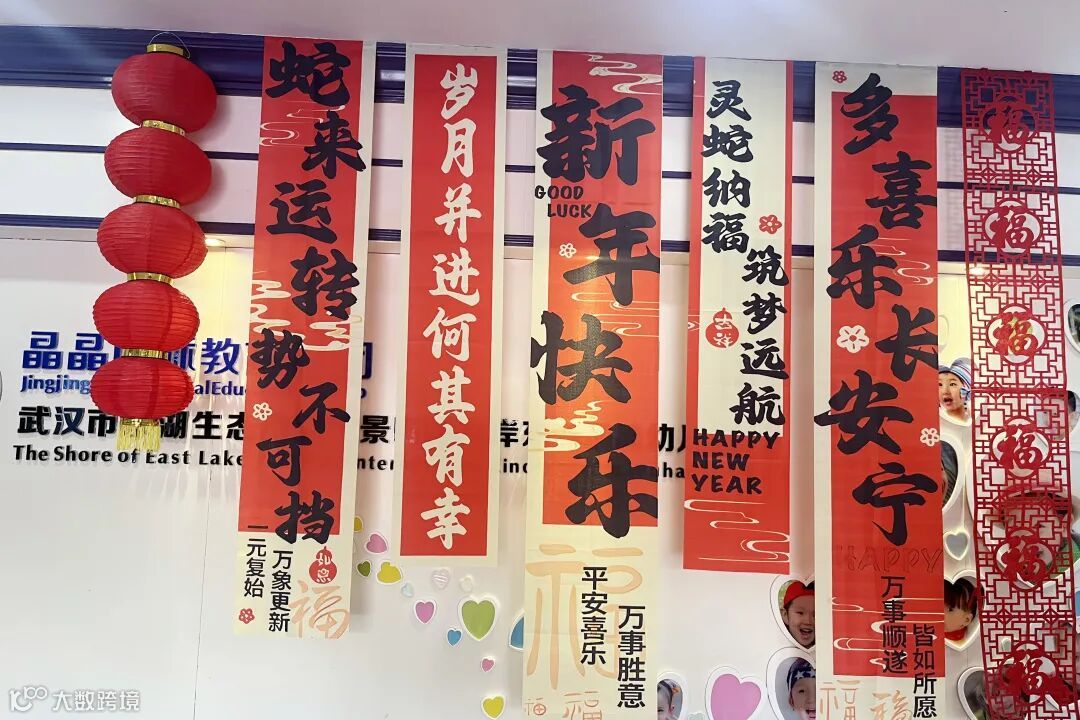 蛇来运转势不可挡
一元复始
万象更新
如意
福
岁月并进何其有幸
新年快乐
GOOD
LUCK
福
平安喜乐
万事胜意
福
福
灵蛇纳福
筑梦远航
吉祥
HAPPY
NEW
YEAR
多喜乐长安宁
HAPPY
万事顺遂
皆如所愿
福
福
福
福
福
福
福
福
晶晶
教
Jingjing
alEduc
武汉市
湖生态
景
岸
幼儿
The Shore of East Lake
大数跨境